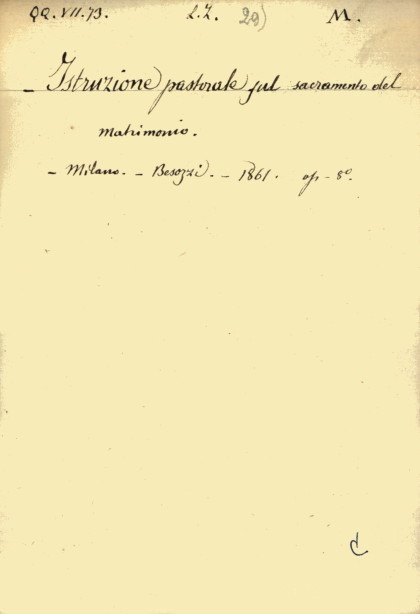 QQ. VII. 73. L. Z. 20) M.
– Istruzione pastorale sul sacramento del
matrimonio.
– Milano. – Besozzi. – 1861. op – 8º.
C